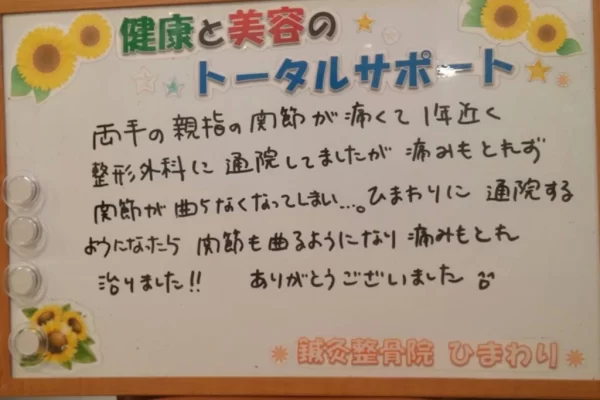 健康と美容の
トータルサポート
両手の親指の関節が痛くて1年近く
整形外科に通院してましたが痛みもとれず
関節が曲らなくなってしまい...。ひまわりに通院する
ようになったら関節も曲るようになり痛みもとれ
治りました!! ありがとうございました
鍼灸整骨院 ひまわり